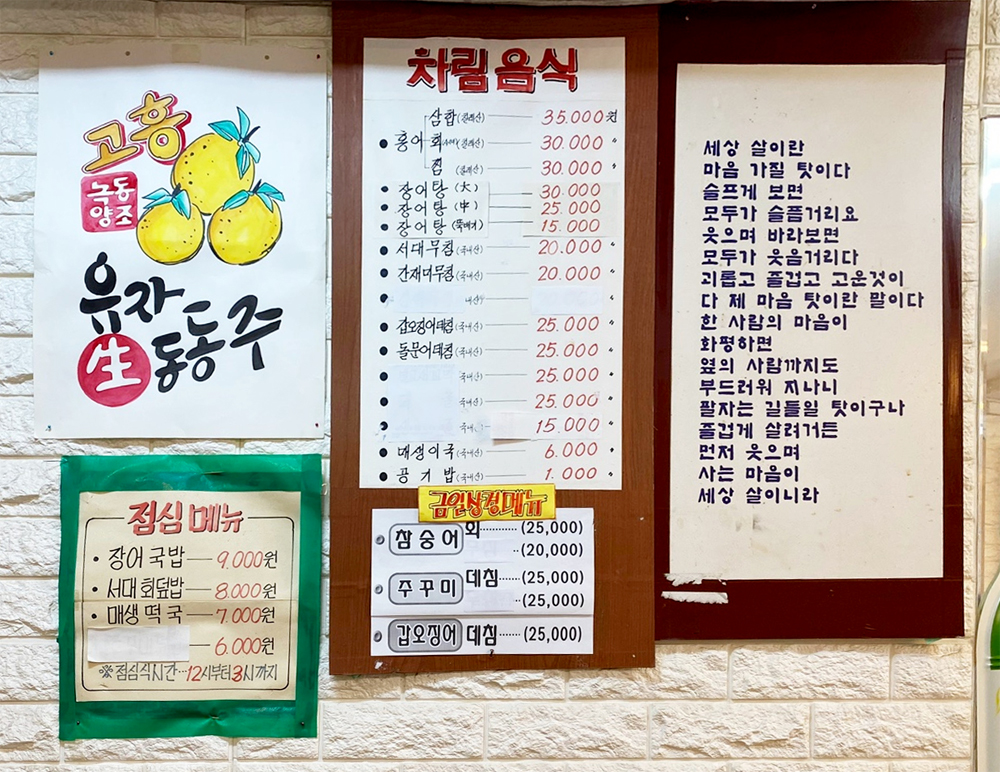 고흥
녹동
양조
유자
生 동동주
점심 메뉴
• 장어 국밥 — 9.000원
• 서대 회덮밥 — 8.000원
• 매생 떡국 — 7.000원
— 6.000원
※ 점심식시간 ··· 12시부터 3시까지
차림 음식
삼합 (칠레산) — 35.000원
• 홍어 회 (칠레산) — 30.000 〃
찜 (칠레산) — 30.000 〃
• 장어탕 (大) — 30.000 〃
• 장어탕 (中) — 25.000 〃
• 장어탕 (뚝배기) — 15.000 〃
• 서대무침 (국내산) — 20.000 〃
• 간재미무침 (국내산) — 20.000 〃
• 내산 〃
• 갑오징어데침 (국내산) — 25.000 〃
• 돌문어데침 (국내산) — 25.000 〃
• 국내산) — 25.000 〃
• 국내산) — 25.000 〃
• 국내산 — 15.000 〃
• 매생이국 (국내산) — 6.000 〃
• 공기밥 (국내산) — 1.000 〃
금일상경메뉴
참숭어 회 ········ (25,000)
·· (20,000)
주꾸미 데침 ······ (25,000)
······ (25,000)
갑오징어 데침 ······ (25,000)
세상 살이란
마음 가질 탓이다
슬프게 보면
모두가 슬픔거리요
웃으며 바라보면
모두가 웃음거리다
괴롭고 즐겁고 고운것이
다 제 마음 탓이란 말이다
한 사람의 마음이
화평하면
옆의 사람까지도
부드러워 지나니
팔자는 길들일 탓이구나
즐겁게 살려거든
먼저 웃으며
사는 마음이
세상 살이니라